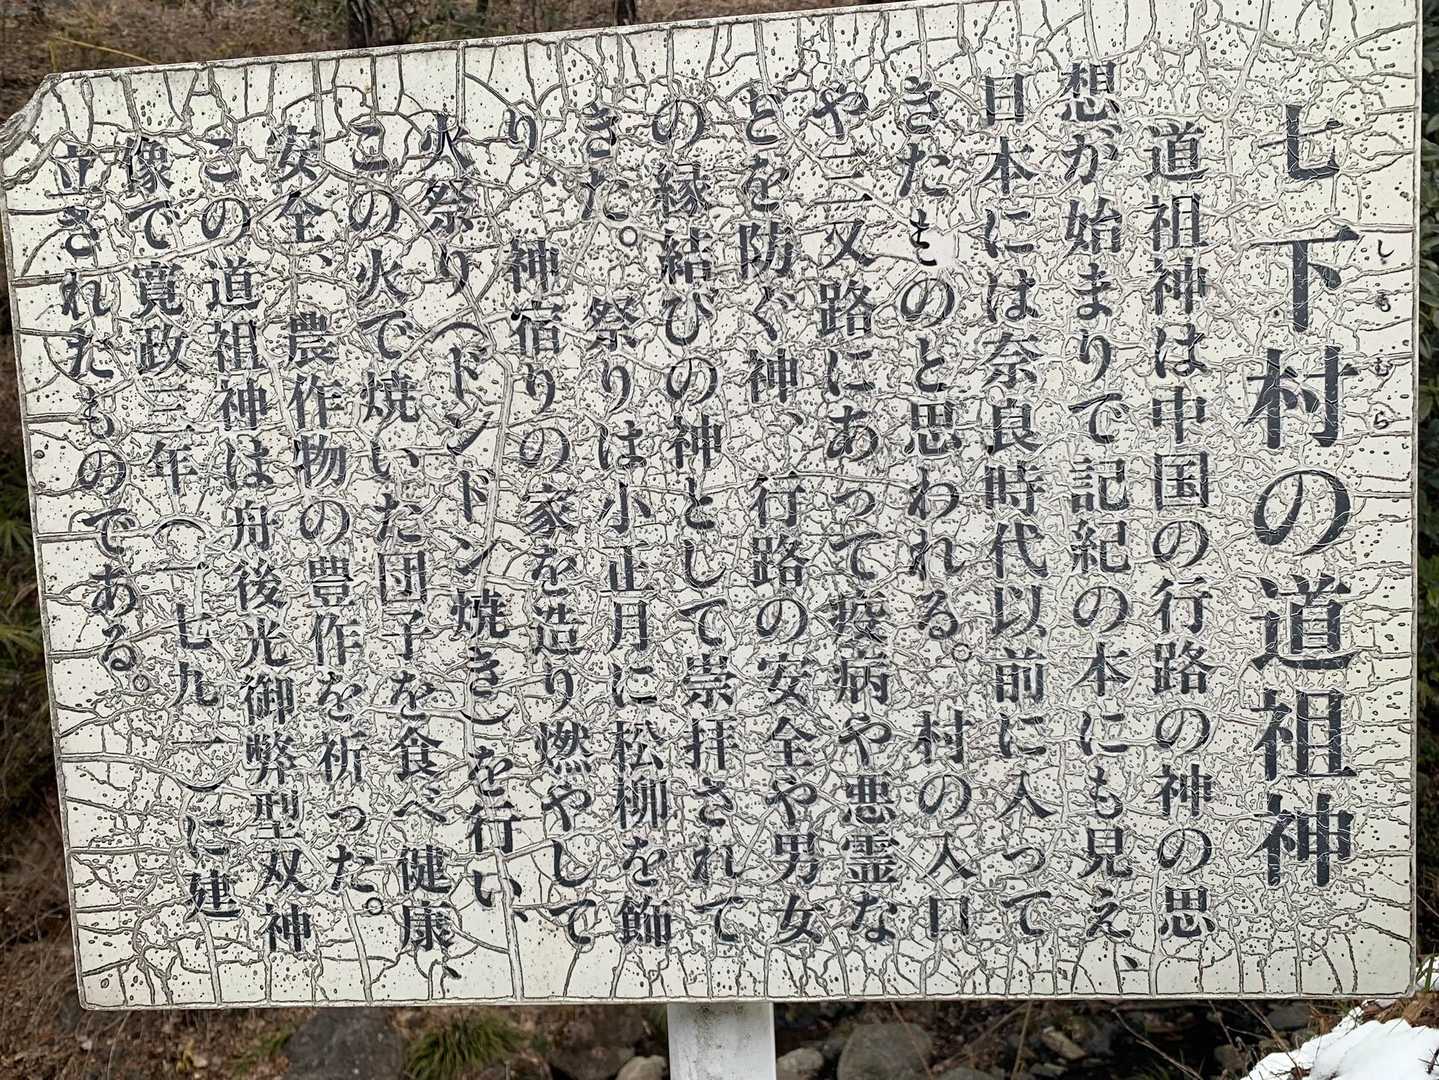 七下村の道祖神
しもむら
道祖神は中国の行路の神の思
想が始まりで記紀の本にも見え、
日本には奈良時代以前に入って
きたものと思われる。村の入口
や三叉路にあって疫病や悪霊な
どを防ぐ神、行路の安全や男女
の縁結びの神として崇拝されて
きた。祭りは小正月に松柳を飾
り、神宿りの家を造り燃やして
火祭り(ドンドン焼き)を行い、
この火で焼いた団子を食べ健康、
安全、農作物の豊作を祈った。
この道祖神は舟後光御弊型双神
像で寛政三年(一七九一)に建
立されたものである。